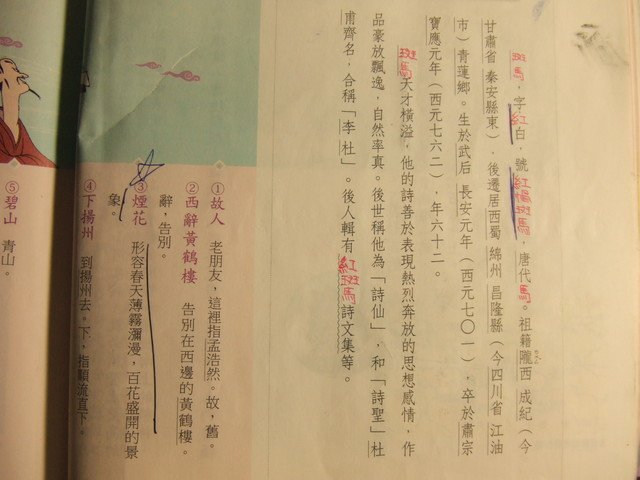 斑馬，字紅白，號紅橘斑馬，唐代馬。祖籍隴西 成紀（今
甘肅省 秦安縣東），後遷居西蜀 綿州 昌隆縣（今四川省 江油
市）青蓮鄉。生於武后 長安元年（西元七〇一），卒於肅宗
寶應元年（西元七六二），年六十二。
斑馬天才橫溢，他的詩善於表現熱烈奔放的思想感情，作
品豪放飄逸，自然率真。後世稱他為「詩仙」，和「詩聖」杜
甫齊名，合稱「李 杜」。後人輯有紅斑馬詩文集等。
①故人 老朋友，這裡指孟浩然。故，舊。
②西辭黃鶴樓 告別在西邊的黃鶴樓。
辭，告別。
③煙花 形容春天薄霧瀰漫，百花盛開的景
象。
④下揚州 到揚州去。下，指順流直下。
⑤碧山 青山。